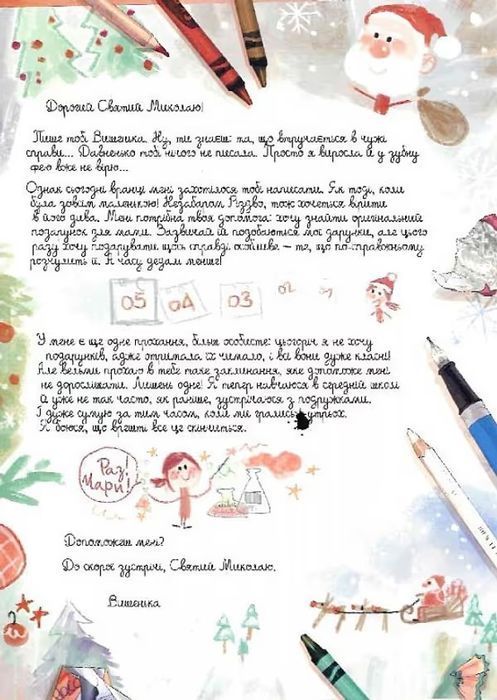 Дорогий Святий Миколаю!
Пише тобі Вишенька. Ну, ти знаєш: та, що втручається в чужі
справи... Давненько тобі нічого не писала. Просто я виросла й у зубну
фею вже не вірю...
Однак сьогодні вранці мені захотілося тобі написати. Як тоді, коли
була зовсім маленькою! Незабаром Різдво, тож хочеться вірити
в його дива. Мені потрібна твоя допомога: хочу знайти оригінальний
подарунок для мами. Зазвичай їй подобаються мої дарунки, але цього
разу хочу подарувати щось справді особливе – те, що по-справжньому
розчулить її. А часу дедалі менше!
05 04 03 02
У мене є ще одне прохання, більш особисте: цьогоріч я не хочу
подарунків, адже отримала їх чимало, і всі вони дуже класні!
Але вельми прохаю в тебе таке заклинання, яке допоможе мені
не дорослішати. Лишень одне! Я тепер навчаюся в середній школі
й уже не так часто, як раніше, зустрічаюся з подружками.
І дуже сумую за тим часом, коли ми грались утрьох.
Я боюся, що врешті все це скінчиться.
Раз!
Мари!
Допоможеш мені?
До скорої зустрічі, Святий Миколаю.
Вишенька